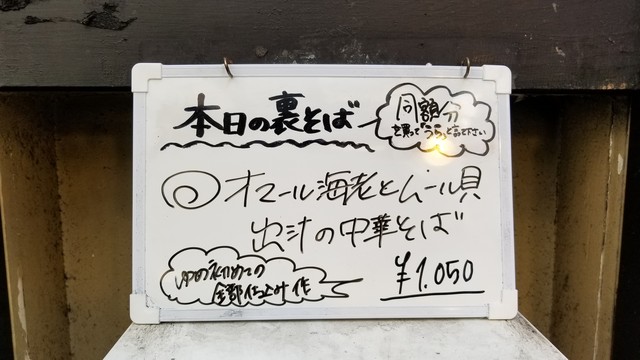 本日の裏そば
同額分
を買って「うら」と言て下さい
オマール海老とムール貝
出汁の中華そば
ゆめ初めての
全部仕上げ作
¥1.050